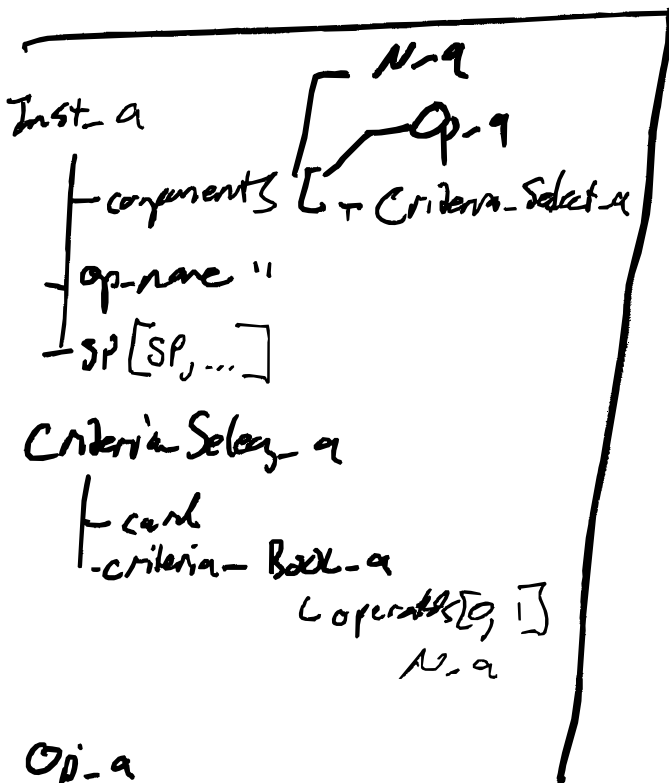 N_a
Inst_a
Op_a
components [ Criteria_Select_a
op_name "
SP[SP, ...]
Criteria_Select_a
card
criteria_ Bool_a
operands[0, 1]
N_a
Op_a